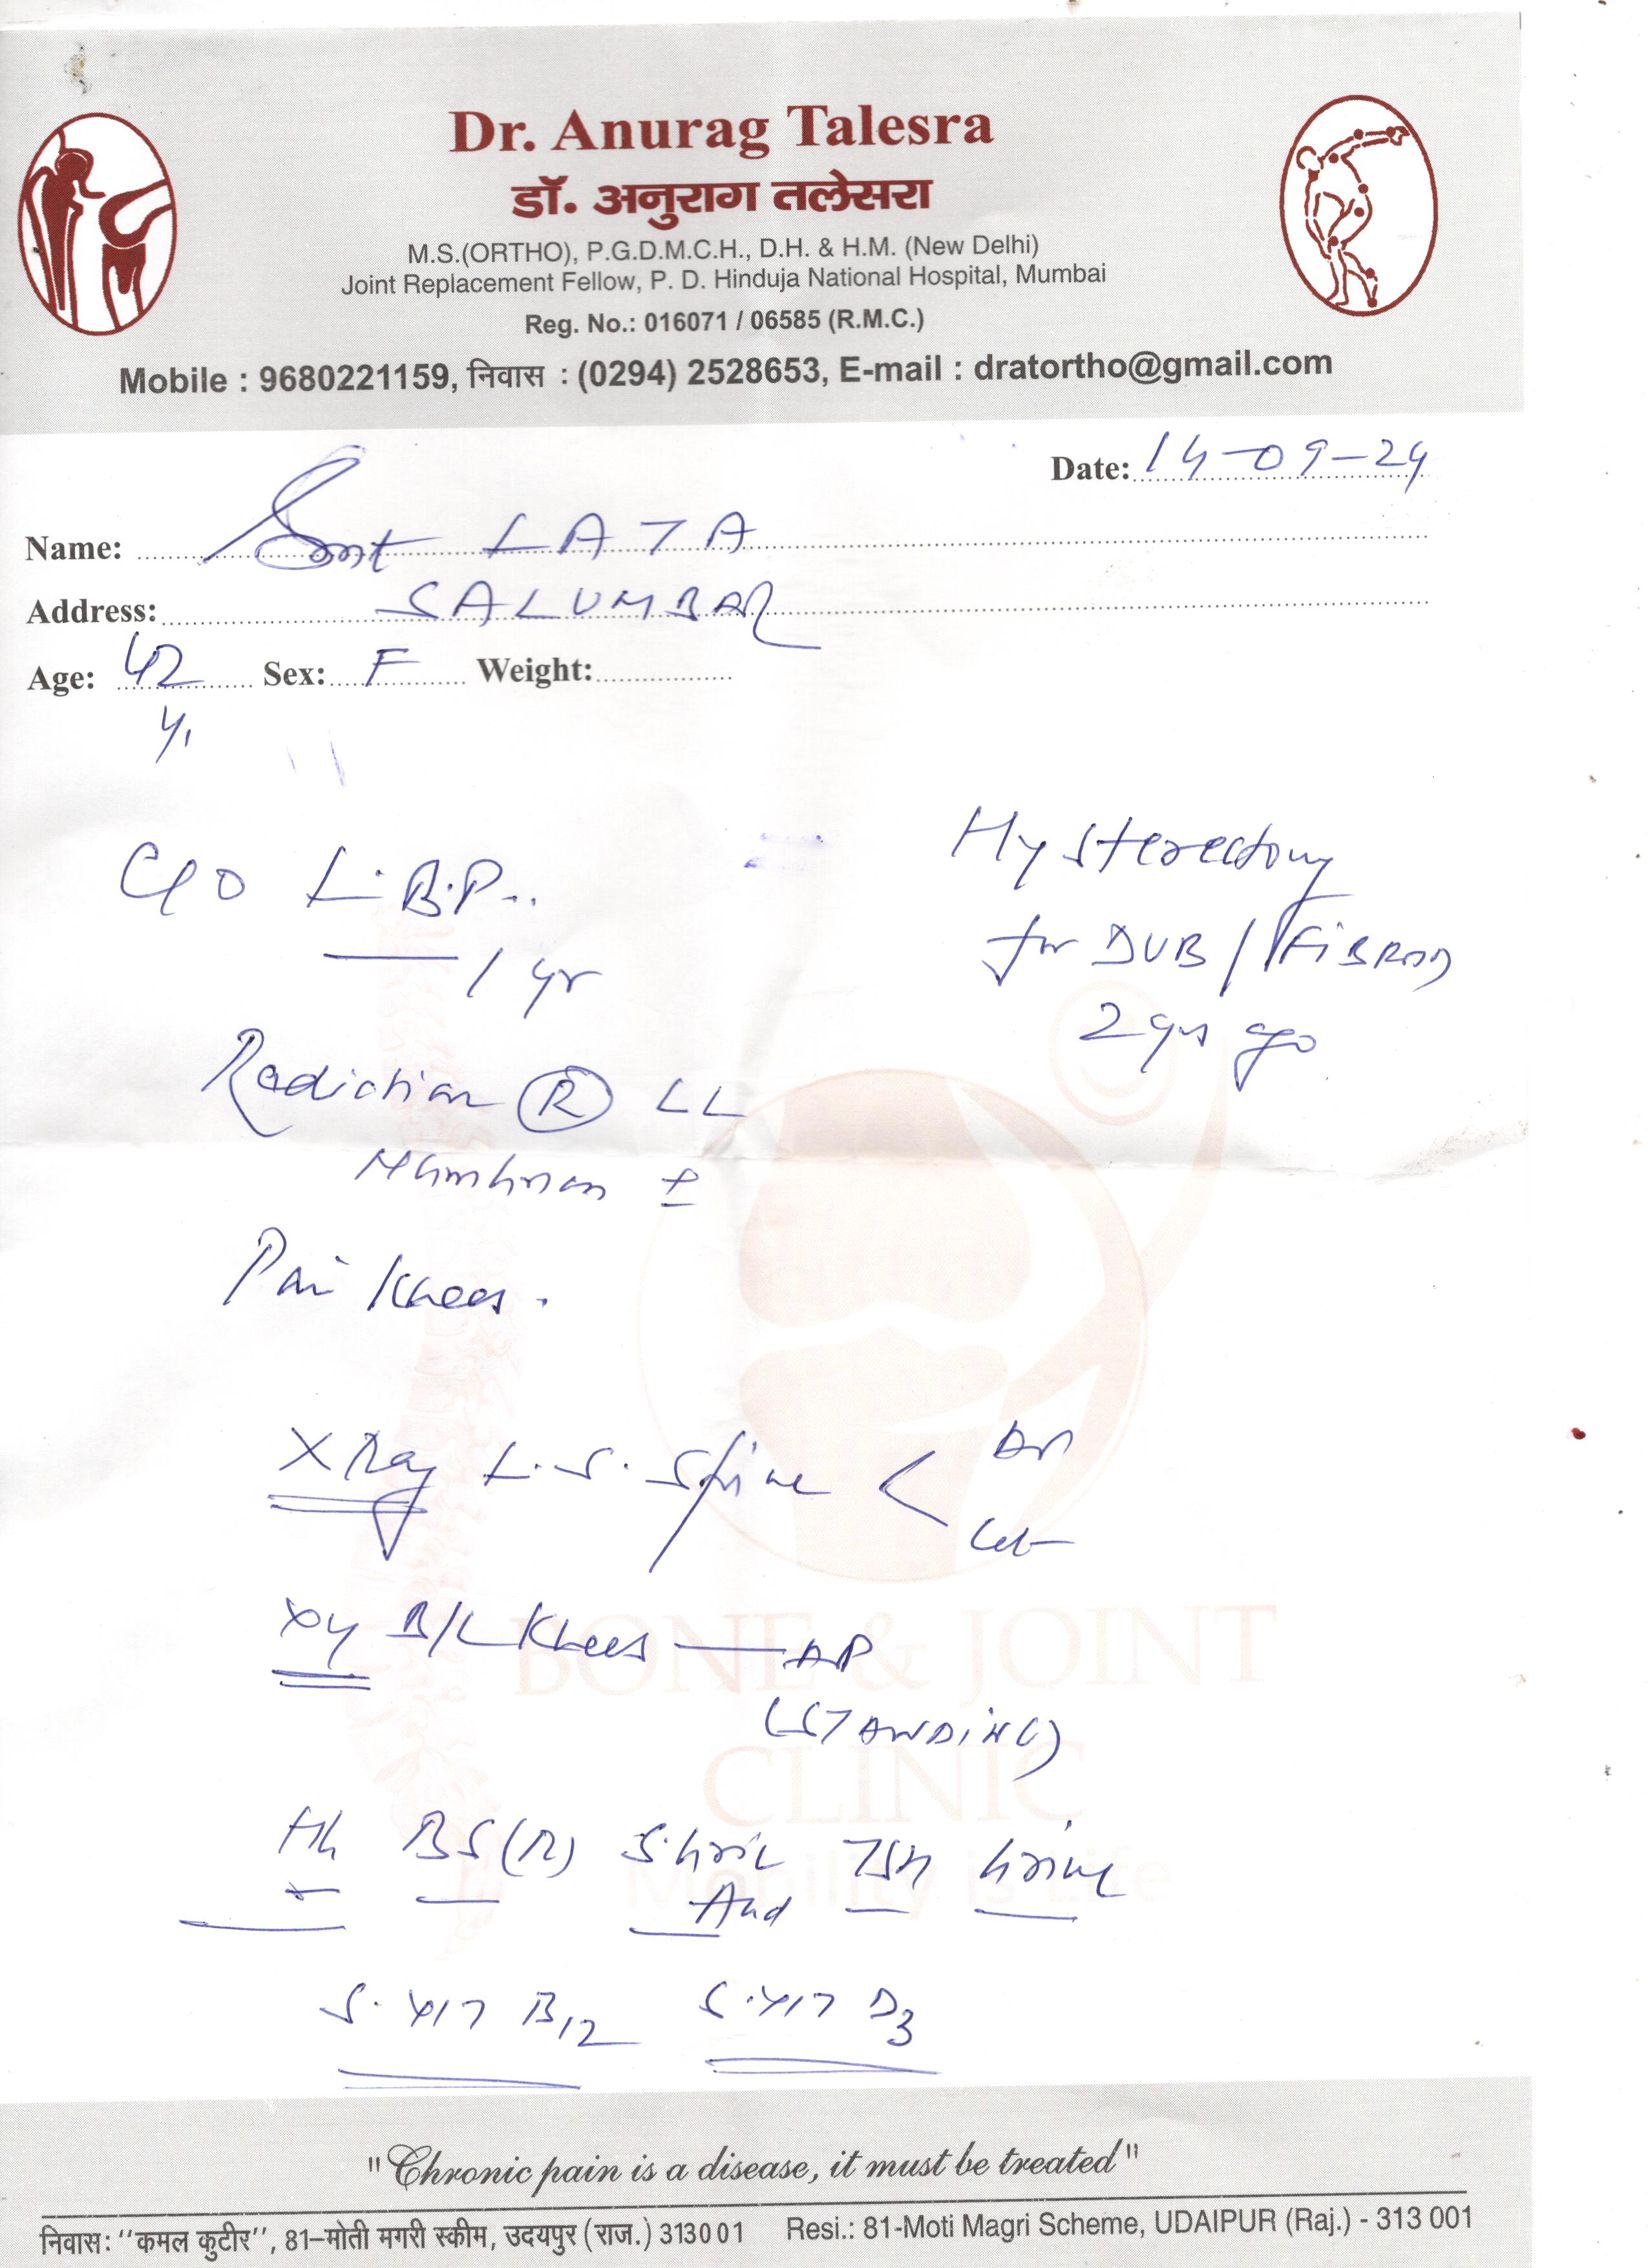 Dr. Anurag Talesra
डॉ. अनुराग तलेसरा
M.S.(ORTHO), P.G.D.M.C.H., D.H. & H.M. (New Delhi)
Joint Replacement Fellow, P. D. Hinduja National Hospital, Mumbai
Reg. No.: 016071 / 06585 (R.M.C.)
Mobile : 9680221159, निवास : (0294) 2528653, E-mail : dratortho@gmail.com
Date: 14-09-24
Name: Smt LATA
Address: SALUMBAR
Age: 42 Sex: F Weight:
C/O L.B.P..
1 yr
Hysterectomy
for DUB /
2 yrs ago
Radiation (R) LL
±
Pain Knees.
X Ray L.S. Spine < AP
Lat
B/L Knees — AP
(STANDING)
BONE & JOINT
CLINIC
Hb BS(R) S. Uric TSH Urine
Acid
S. VIT B12 S. VIT D3
"Chronic pain is a disease, it must be treated"
निवास: ‘‘कमल कुटीर’’, 81–मोती मगरी स्कीम, उदयपुर (राज.) 313001 Resi.: 81-Moti Magri Scheme, UDAIPUR (Raj.) - 313 001